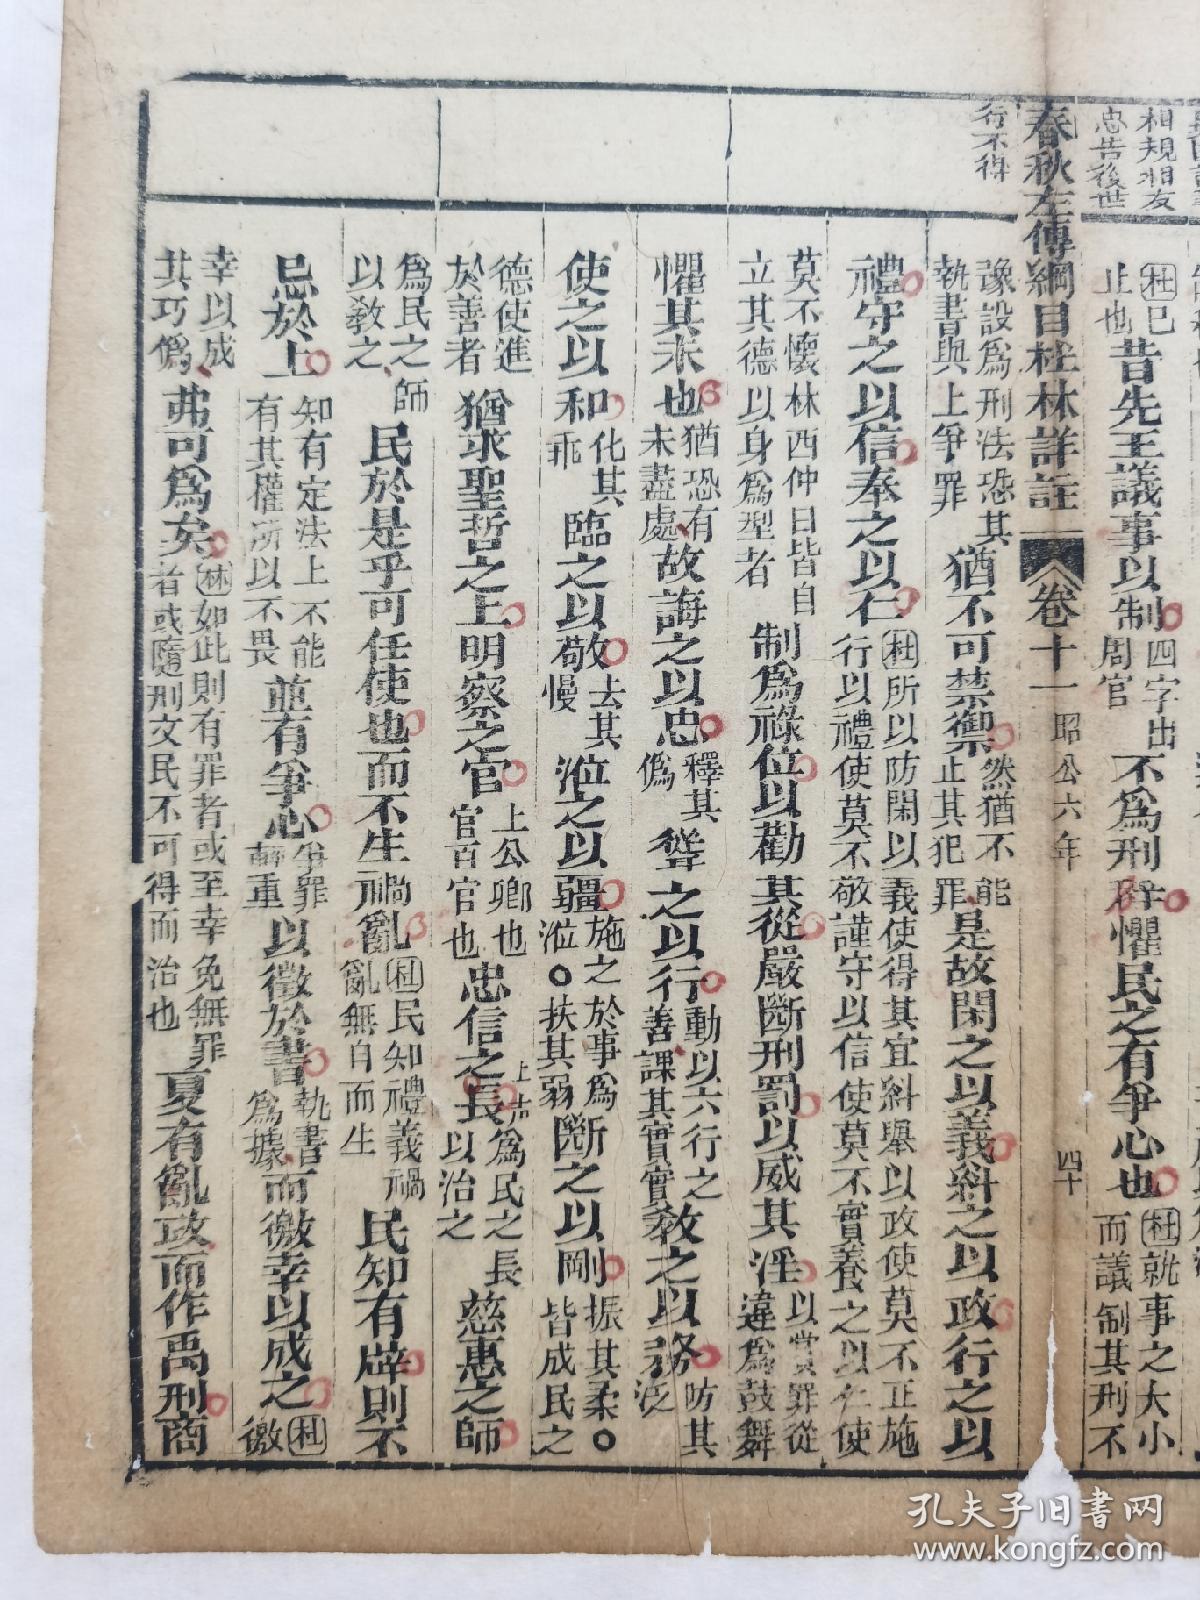 相規朋友
忠告後世
行不得
止也
杜巳
昔先王議事以制
四字出
周官
不為刑辟懼民之有爭心也
杜就事之大小
而議制其刑不
春秋左傳綱目杜林詳註
卷十一
昭公六年
四十
豫設為刑法恐其
執書與上爭罪
猶不可禁禦
然猶不能
止其犯罪
是故閑之以義糾之以政行之以
禮守之以信奉之以仁
杜所以防閑以義使得其宜糾舉以政使莫不正施
行以禮使莫不敬謹守以信使莫不實養之以仁使
莫不懷林西仲曰皆自
立其德以身為型者
制為祿位以勸其從嚴斷刑罰以威其淫
以賞罪從
違為鼓舞
懼其未也
猶恐有
未盡處
故誨之以忠
釋其
偽
聳之以行
動以六行之
善課其實實
教之以務
防其
泛
使之以和
化其
乖
臨之以敬
去其
慢
涖之以彊
施之於事為
涖○扶其弱
斷之以剛
振其柔○
皆成民之
德使進
於善者
猶求聖哲之上明察之官
上公卿也
官百官也
忠信之長
為民之長
以治之
慈惠之師
為民之師
以教之
民於是乎可任使也而不生禍亂
杜民知禮義禍
亂無自而生
民知有辟則不
忌於上
知有定法上不能
有其權所以不畏
並有爭心
爭罪
輕重
以徵於書
執書
為據
而徼幸以成之
杜
徼
幸以成
其巧偽
弗可為矣
林如此則有罪者或至幸免無罪
者或隨刑文民不可得而治也
夏有亂政而作禹刑商
孔夫子旧书网
www.kongfz.com